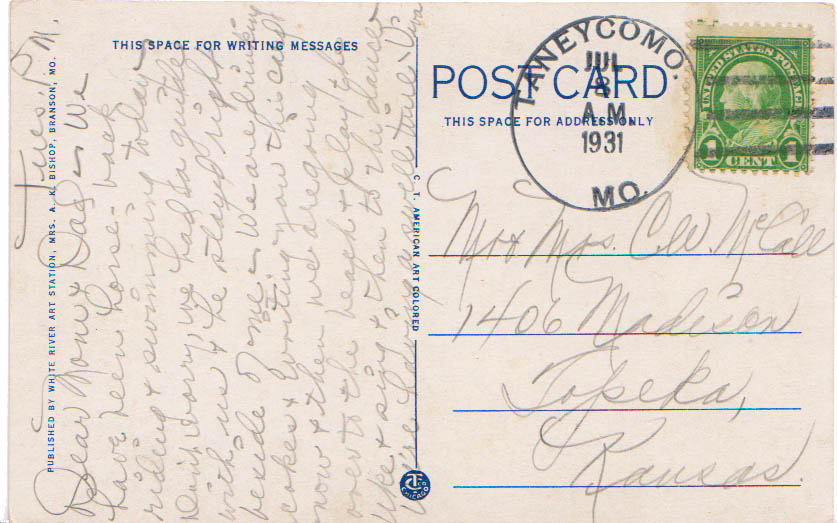 THIS SPACE FOR WRITING MESSAGES
POST CARD
THIS SPACE FOR ADDRESS ONLY
TANEYCOMO.
JUL
8
A.M.
1931
MO.
UNITED STATES POSTAGE
1 CENT 1
Mr & Mrs. C.W. McCall
1406 Madison
Topeka,
Kansas.
Tues. P.M.
Dear Mone & Dad - We
have been horse-back
riding & swimming today -
Don't worry, we had a guide
with us & he stayed right
beside of me - We are drinking
cokes & writing you this card
now & then we are going
over to the beach & play the
uke & sing & then to the dance
We're having a swell time - Viva
PUBLISHED BY WHITE RIVER ART STATION, MRS. A. K. BISHOP, BRANSON, MO.
C. T. AMERICAN ART COLORED
CHICAGO